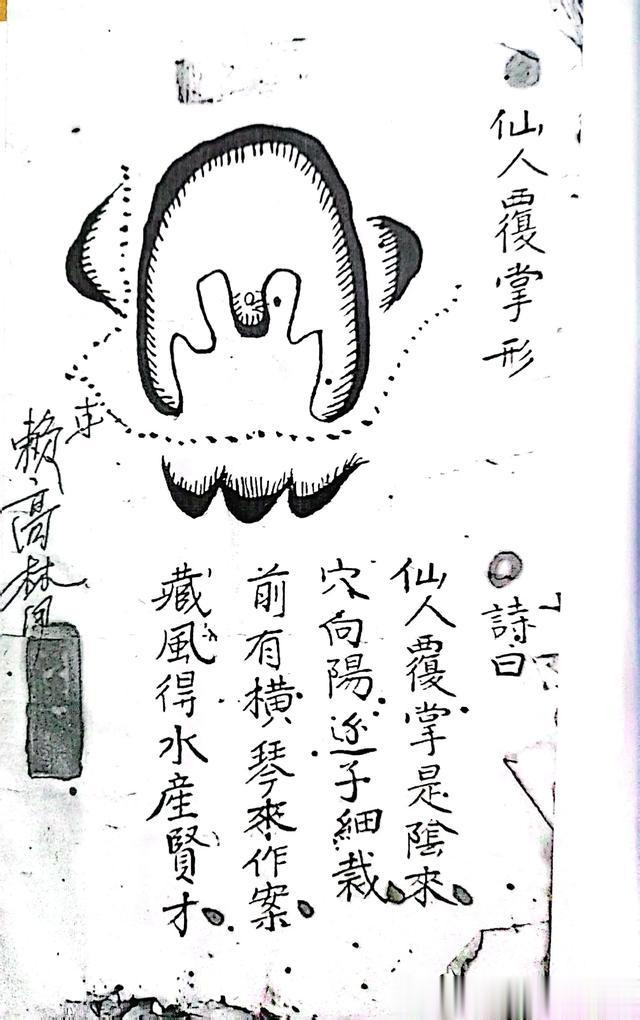 仙人覆掌形
詩曰
仙人覆掌是陰來
穴向陽边子細裁
前有橫琴來作案
藏風得水產賢才
賴
高林